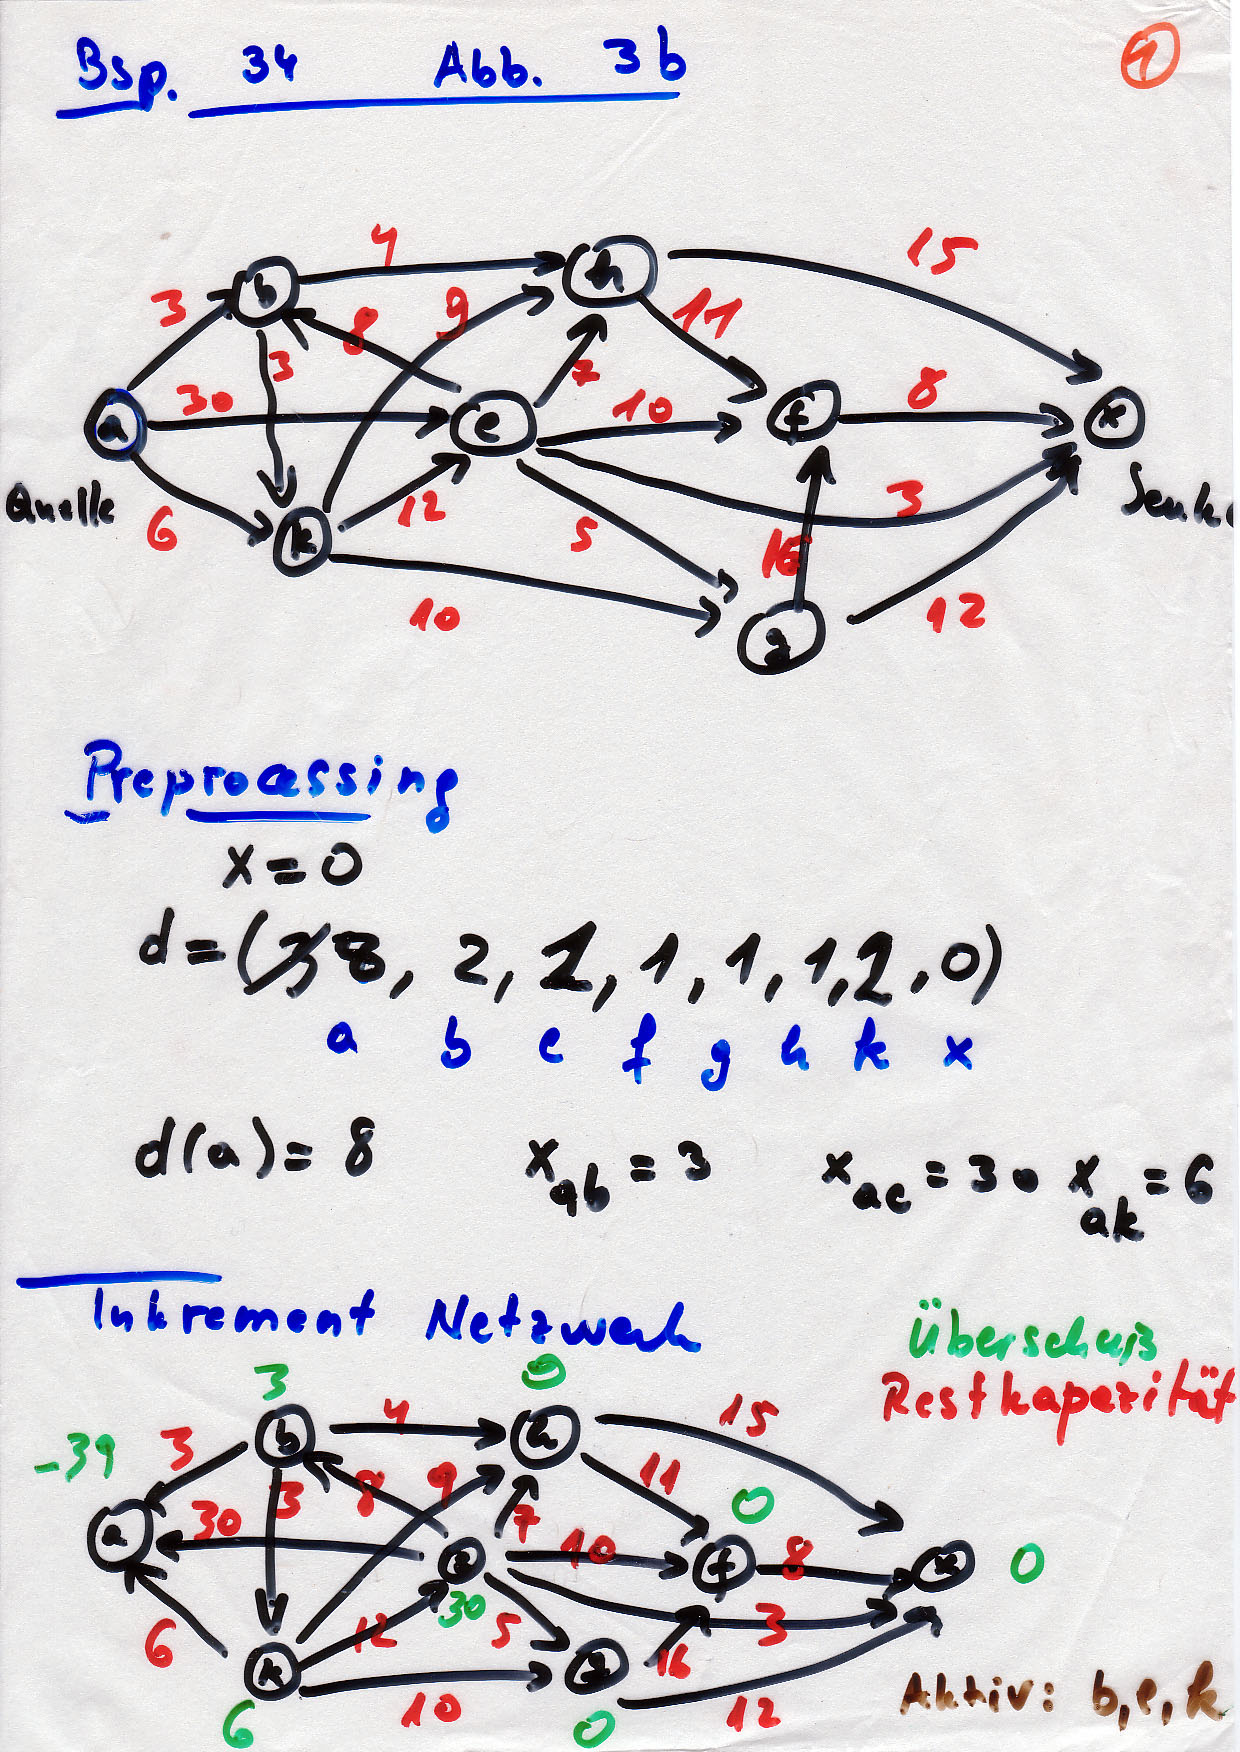 Bsp. 34 Abb. 3b
1
4
15
3
b
h
8
9
11
3
7
30
10
8
a
e
f
x
Quelle
Senke
6
k
12
5
3
16
10
g
12
Preprocessing
x = 0
d = ( 8, 2, 1, 1, 1, 1, 2, 0)
a b e f g h k x
d(a) = 8 x ab = 3 x ae = 30 x ak = 6
Inkrement Netzwerk
Überschuß
Restkapazität
3
0
4
15
b
h
-39
3
9
11
3
8
0
30
7
a
10
e
f
8
x
0
30
3
6
12
5
k
g
16
10
12
6
0
Aktiv: b, e, k